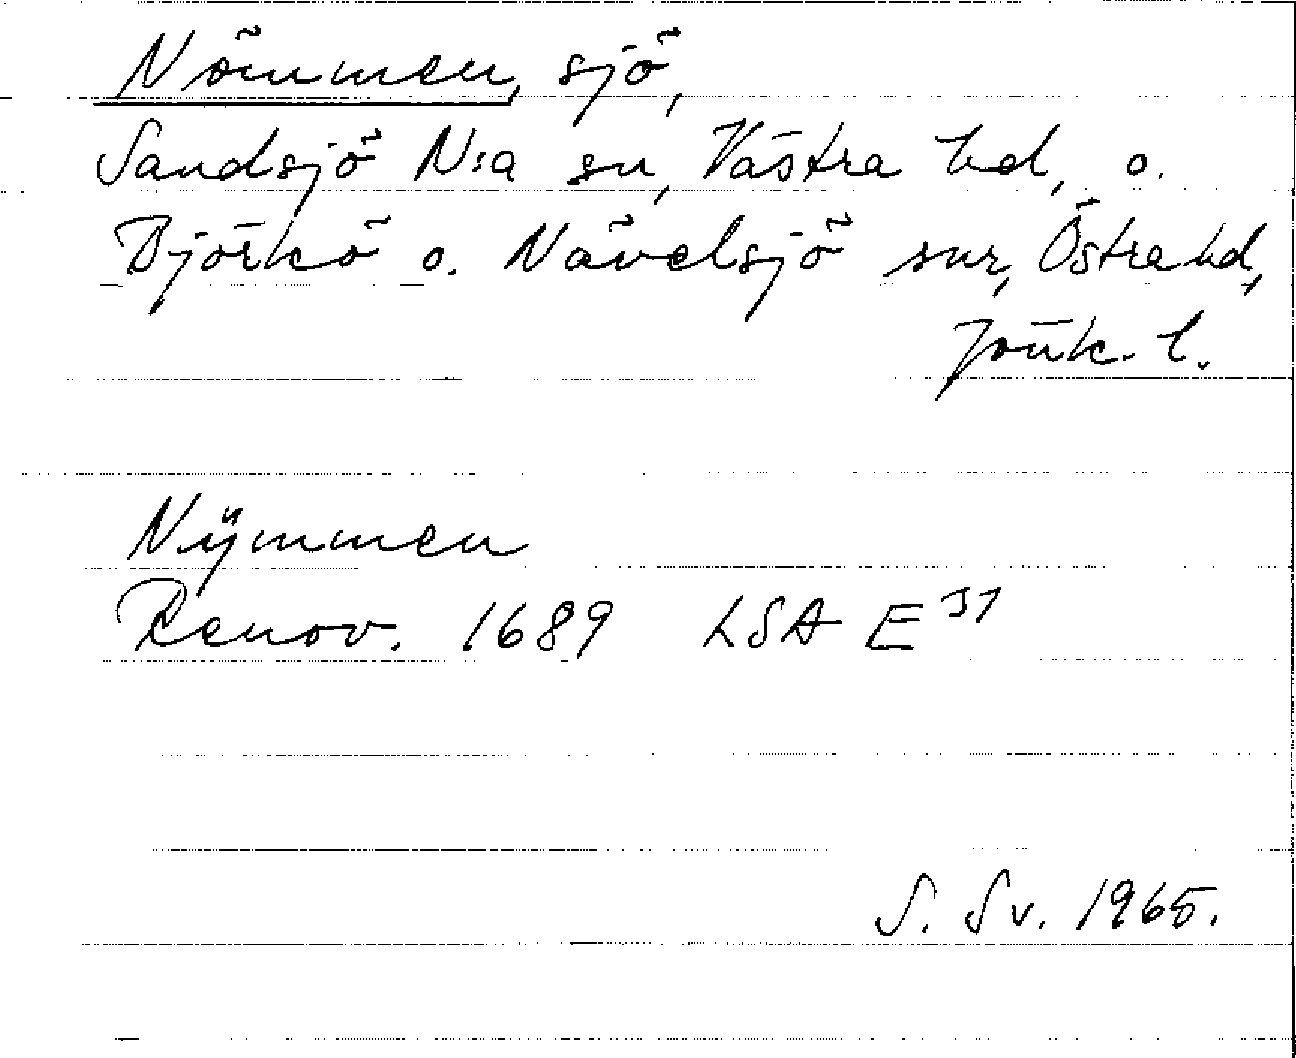 Nömmen, sjö,
Sandsjö N:a sn, Västra hd, o.
Björkö o. Nävelsjö snr, Östra hd,
Jönk. l.
Nÿmmen
Renov. 1689 LSA E 31
S. Sv. 1965.